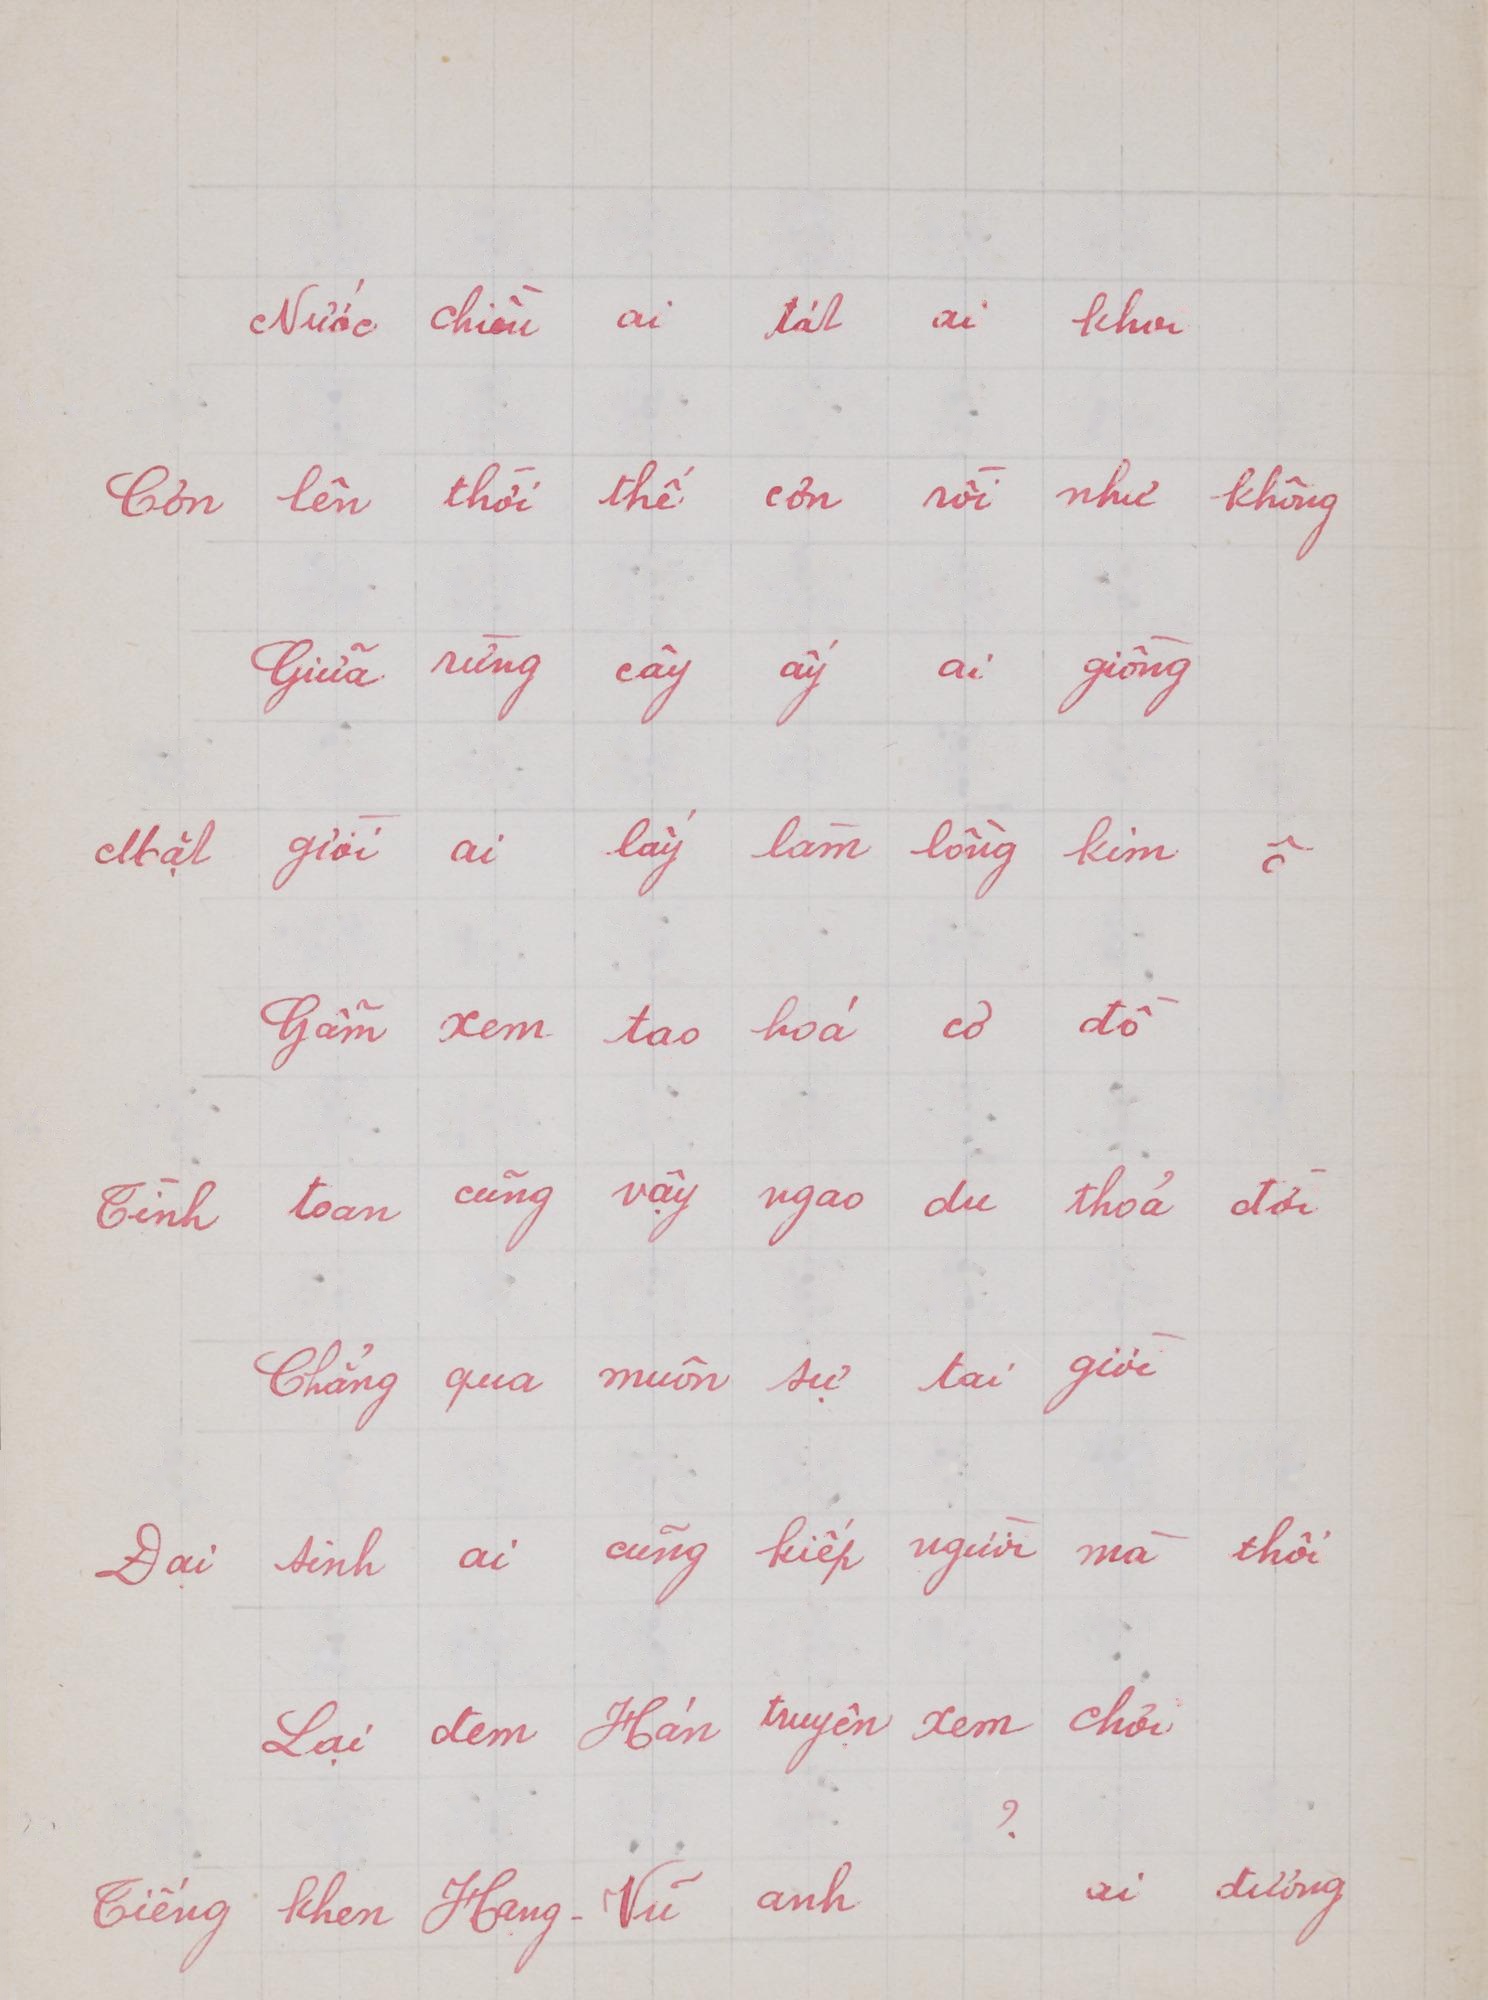 Nước chiều ai tát ai khơi
Cơn lên thời thế cơn rồi như không
Giữa rừng cây ấy ai giồng
Mặt giời ai lấy làm lồng kim ô
Gẫm xem tao hoá cơ đồ
Tình toan cũng vậy ngao du thoả đời
Chẳng qua muôn sự tai giời
Đại sinh ai cũng kiếp người mà thôi
Lại đem Hán truyện xem chơi
?
Tiếng khen Hạng-Vũ anh ai đương